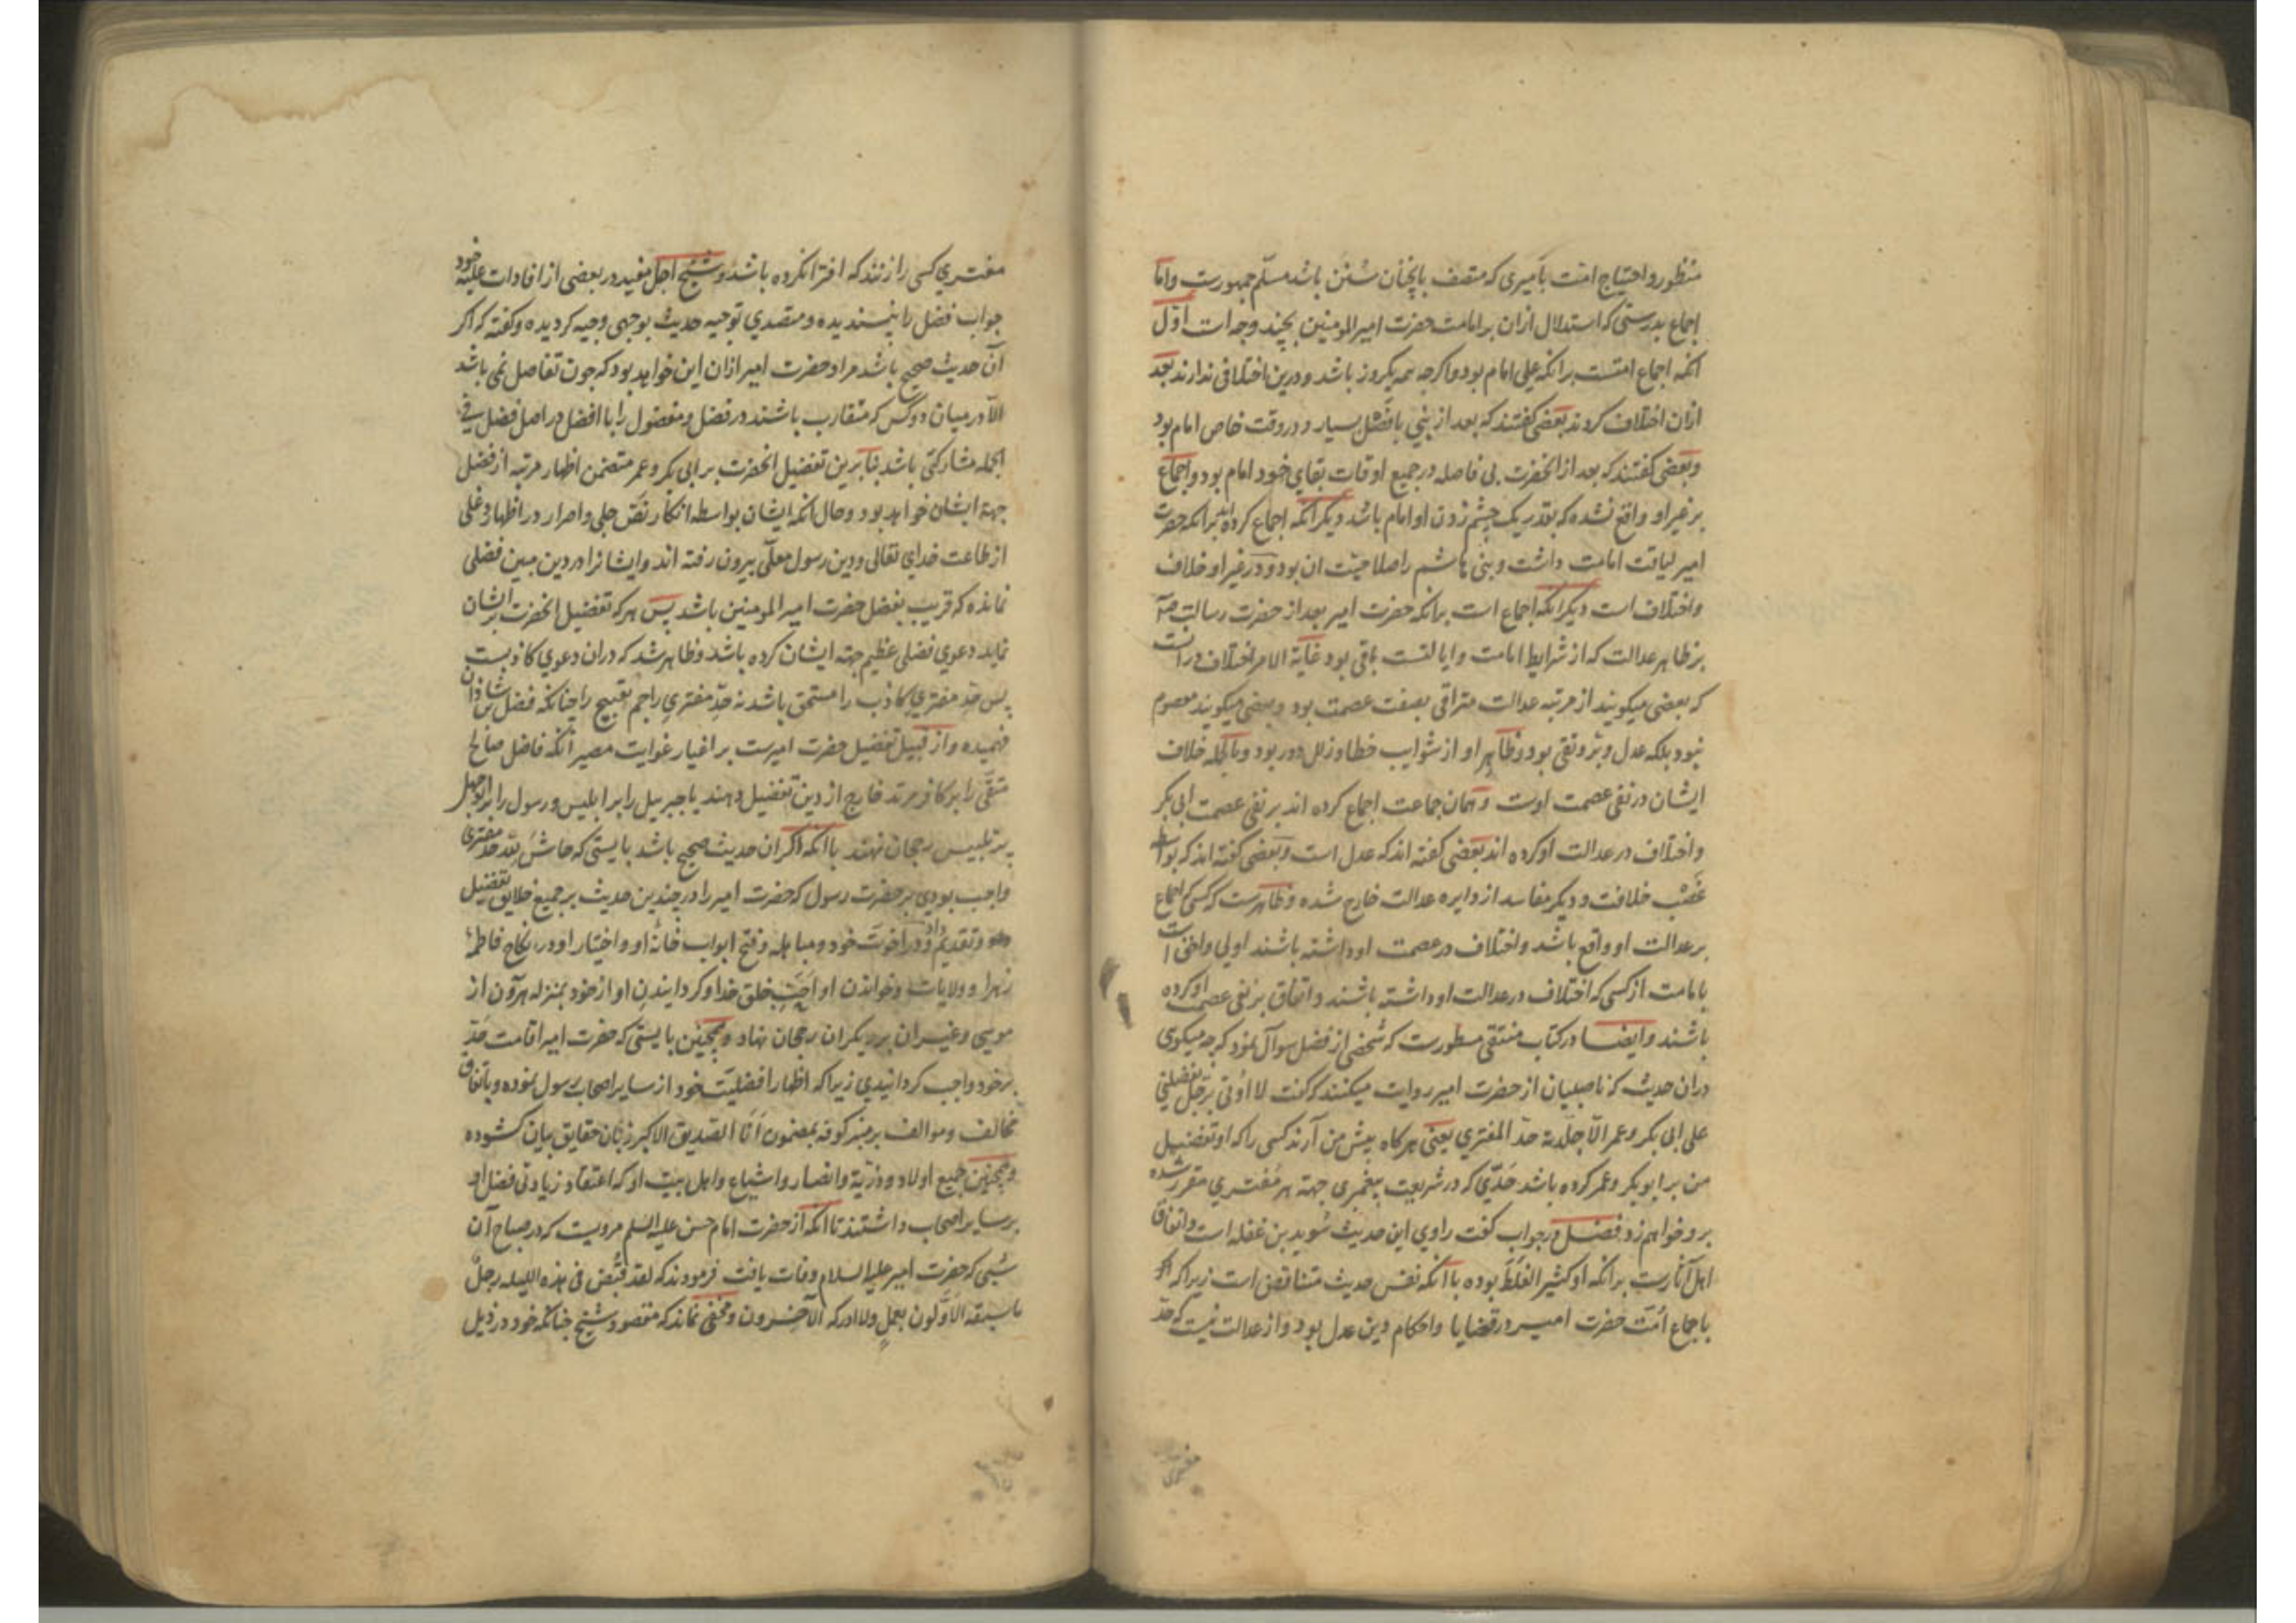 منظور و احتیاج امت بامیری که متصف بانچنان سنن باشد مسلم جمهورست و اما
اجماع بدرستی که استدلال ازان بر امامت حضرت امیر المومنین بچند وجه است اول
انکه اجماع امتست برانکه علی امام بود و اکرچه همه یکروز باشد و درین اختلافی ندارند بعد
ازان اختلاف کردند بعضی کفتند که بعد از نبی بافصل بسیار و در وقت خاص امام بود
و بعضی کفتند که بعد از انحضرت بی فاصله در جمیع اوقات بقای خود امام بود و اجماع
بر غیر او واقع نشده که بقدر یک چشم زدن او امام باشد دیکر آنکه اجماع کرده اند برانکه حضرت
امیر لیاقت امامت داشت و بنی هاشم را صلاحیت ان بود و در غیر او خلاف
و اختلاف است دیکر انکه اجماع است برانکه حضرت امیر بعد از حضرت رسالت
بر ظاهر عدالت که از شرایط امامت و ایالتست باقی بود غایة الامر اختلاف در انست
که بعضی میکویند از مرتبه عدالت مترقی بصفت عصمت بود و بعضی میکویند معصوم
نبود بلکه عدل و بر و تقی بود و ظاهر او از شوایب خطا و زلل دور بود و بالجمله خلاف
ایشان در نفی عصمت اوست و همان جماعت اجماع کرده اند بر نفی عصمت ابی بکر
و اختلاف در عدالت او کرده اند بعضی کفته اند که عدل است و بعضی کفته اند که بواسطه
غصب خلافت و دیکر مفاسد از دایره عدالت خارج شده و ظاهرست که کسی که اجماع
بر عدالت او واقع باشد و اختلاف در عصمت او داشته باشند اولی و احق است
بامامت از کسی که اختلاف در عدالت او داشته باشند و اتفاق بر نفی عصمت او کرده
باشند و ایضا در کتاب منتقی مسطورست که شخصی از فضل سوال نمود که چه میکوی
دران حدیث که ناصبیان از حضرت امیر روایت میکنند که کفت لا اوتی برجل یفضلنی
علی ابی بکر و عمر الا جلدته حد المفتری یعنی هرکاه پیش من آرند کسی را که او تفضیل
من بر ابو بکر و عمر کرده باشد حدی که در شریعت پیغمبری جهة هر مفتری مقرر شده
برو خواهم زد فضل در جواب کفت راوی این حدیث سوید بن غفله است و اتفاق
اهل آثارست برانکه او کثیر الغلط بوده با آنکه نفس حدیث متناقض است زیرا که
باجماع امت حضرت امیر در قضایا و احکام دین عدل بود و از عدالت نیست که حد
مفتری
مفتری کسی را زنند که افترا نکرده باشد و شیخ اجل مفید در بعضی از افادات علیه خود
جواب فضل را نپسندیده و متصدی توجیه حدیث بوجهی وجیه کردیده و کفته که اکر
آن حدیث صحیح باشد مراد حضرت امیر ازان این خواهد بود که چون تفاضل نمی باشد
الا در میان دو کس که متقارب باشند در فضل و مفضول را با افضل در اصل فضل فی
الجمله مشارکتی باشد بنابرین تفضیل انحضرت بر ابی بکر و عمر متضمن اظهار مرتبه از فضل
جهة ایشان خواهد بود و حال آنکه ایشان بواسطه انکار نص جلی و اصرار در اظهار دغلی
از طاعت خدای تعالی و دین رسول معلی بیرون رفته اند و ایشانرا در دین مبین فضلی
نمانده که قریب بفضل حضرت امیر المومنین باشد پس هرکه تفضیل انحضرت بر ایشان
نماید دعوی فضلی عظیم جهة ایشان کرده باشد و ظاهر شد که دران دعوی کاذبست
پس حد مفتری کاذب را مستحق باشد نه حد مفتری راجم تقبیح را چنانکه فضل بن شاذان
فهمیده و از قبیل تفضیل حضرت امیرست بر اغیار غوایت مصیر آنکه فاضل صالح
متقی را بر کافر مرتد خارج از دین تفضیل دهند یا جبرییل را بر ابلیس و رسول را بر ابوجهل
پر تلبیس رجحان نهند با آنکه اکر ان حدیث صحیح باشد بایستی که حاش لله حد مفتری
واجب بودی بر حضرت رسول که حضرت امیر را در چندین حدیث بر جمیع خلایق تفضیل
داد و تقدیم در اخوت خود و مباهله و فتح ابواب خانه او و اختیار او در نکاح فاطمه
زهرا و ولایات و خواندن او احب خلق خدا و کردانیدن او از خود بمنزله هارون از
موسی و غیر ان بر دیکران رجحان نهاد و همچنین بایستی که حضرت امیر اقامت حد
بر خود واجب کردانیدی زیرا که اظهار افضلیت خود از سایر اصحاب رسول نموده و باتفاق
مخالف و موالف بر منبر کوفه بمضمون انا الصدیق الاکبر زبان حقایق بیان کشوده
و همچنین جمیع اولاد و ذریة و انصار و اشیاع و اهل بیت او که اعتقاد زیادتی فضل او
بر سایر اصحاب داشتند تا آنکه از حضرت امام حسن علیه السلم مرویست که در صباح آن
شبی که حضرت امیر علیه السلام وفات یافت فرمودند که لقد قبض فی هذه اللیله رجل
ما سبقه الاولون بعمل ولا ادرکه الآخرون و مخفی نماند که مقصود شیخ چنانکه خود در ذیل